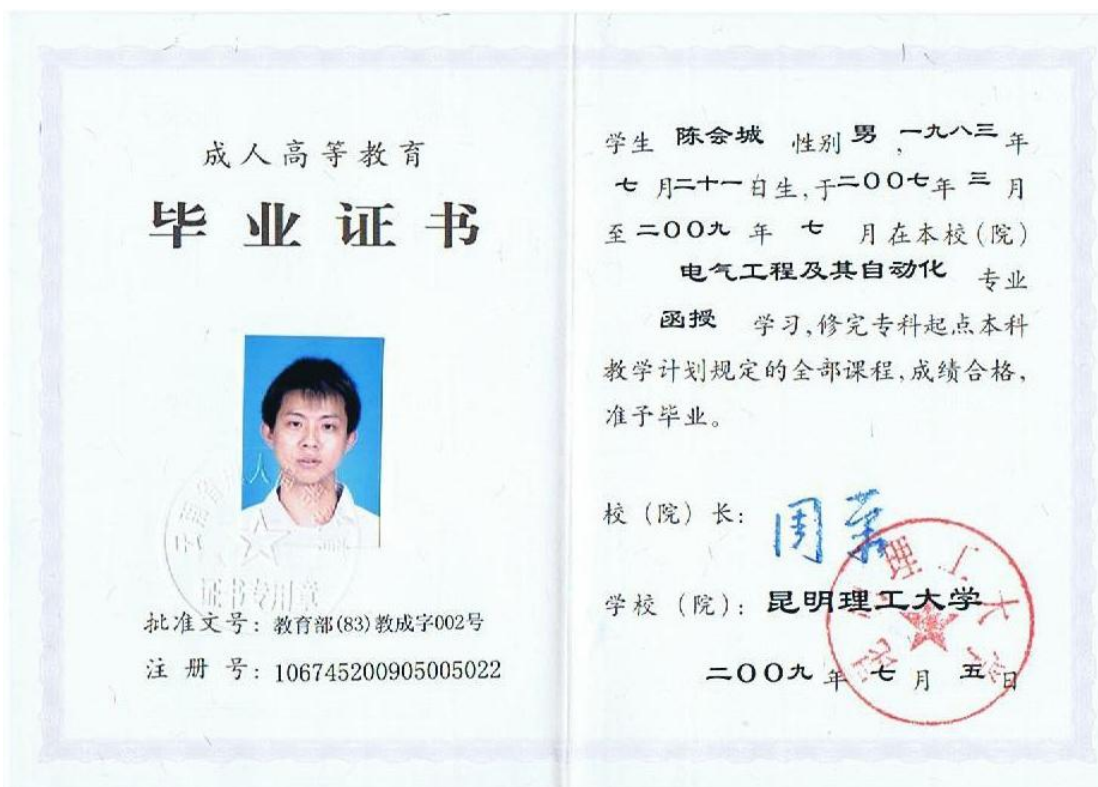 成人高等教育
毕业证书
证书专用章
批准文号：教育部(83)教成字002号
注 册 号：106745200905005022
学生 陈会城 性别 男，一九八三年
七月二十一日生，于二〇〇七年三月
至二〇〇九年七月在本校(院)
电气工程及其自动化 专业
函授 学习，修完专科起点本科
教学计划规定的全部课程，成绩合格，
准予毕业。
校（院）长：周荣
学校（院）：昆明理工大学
二〇〇九年七月五日
昆明理工大学